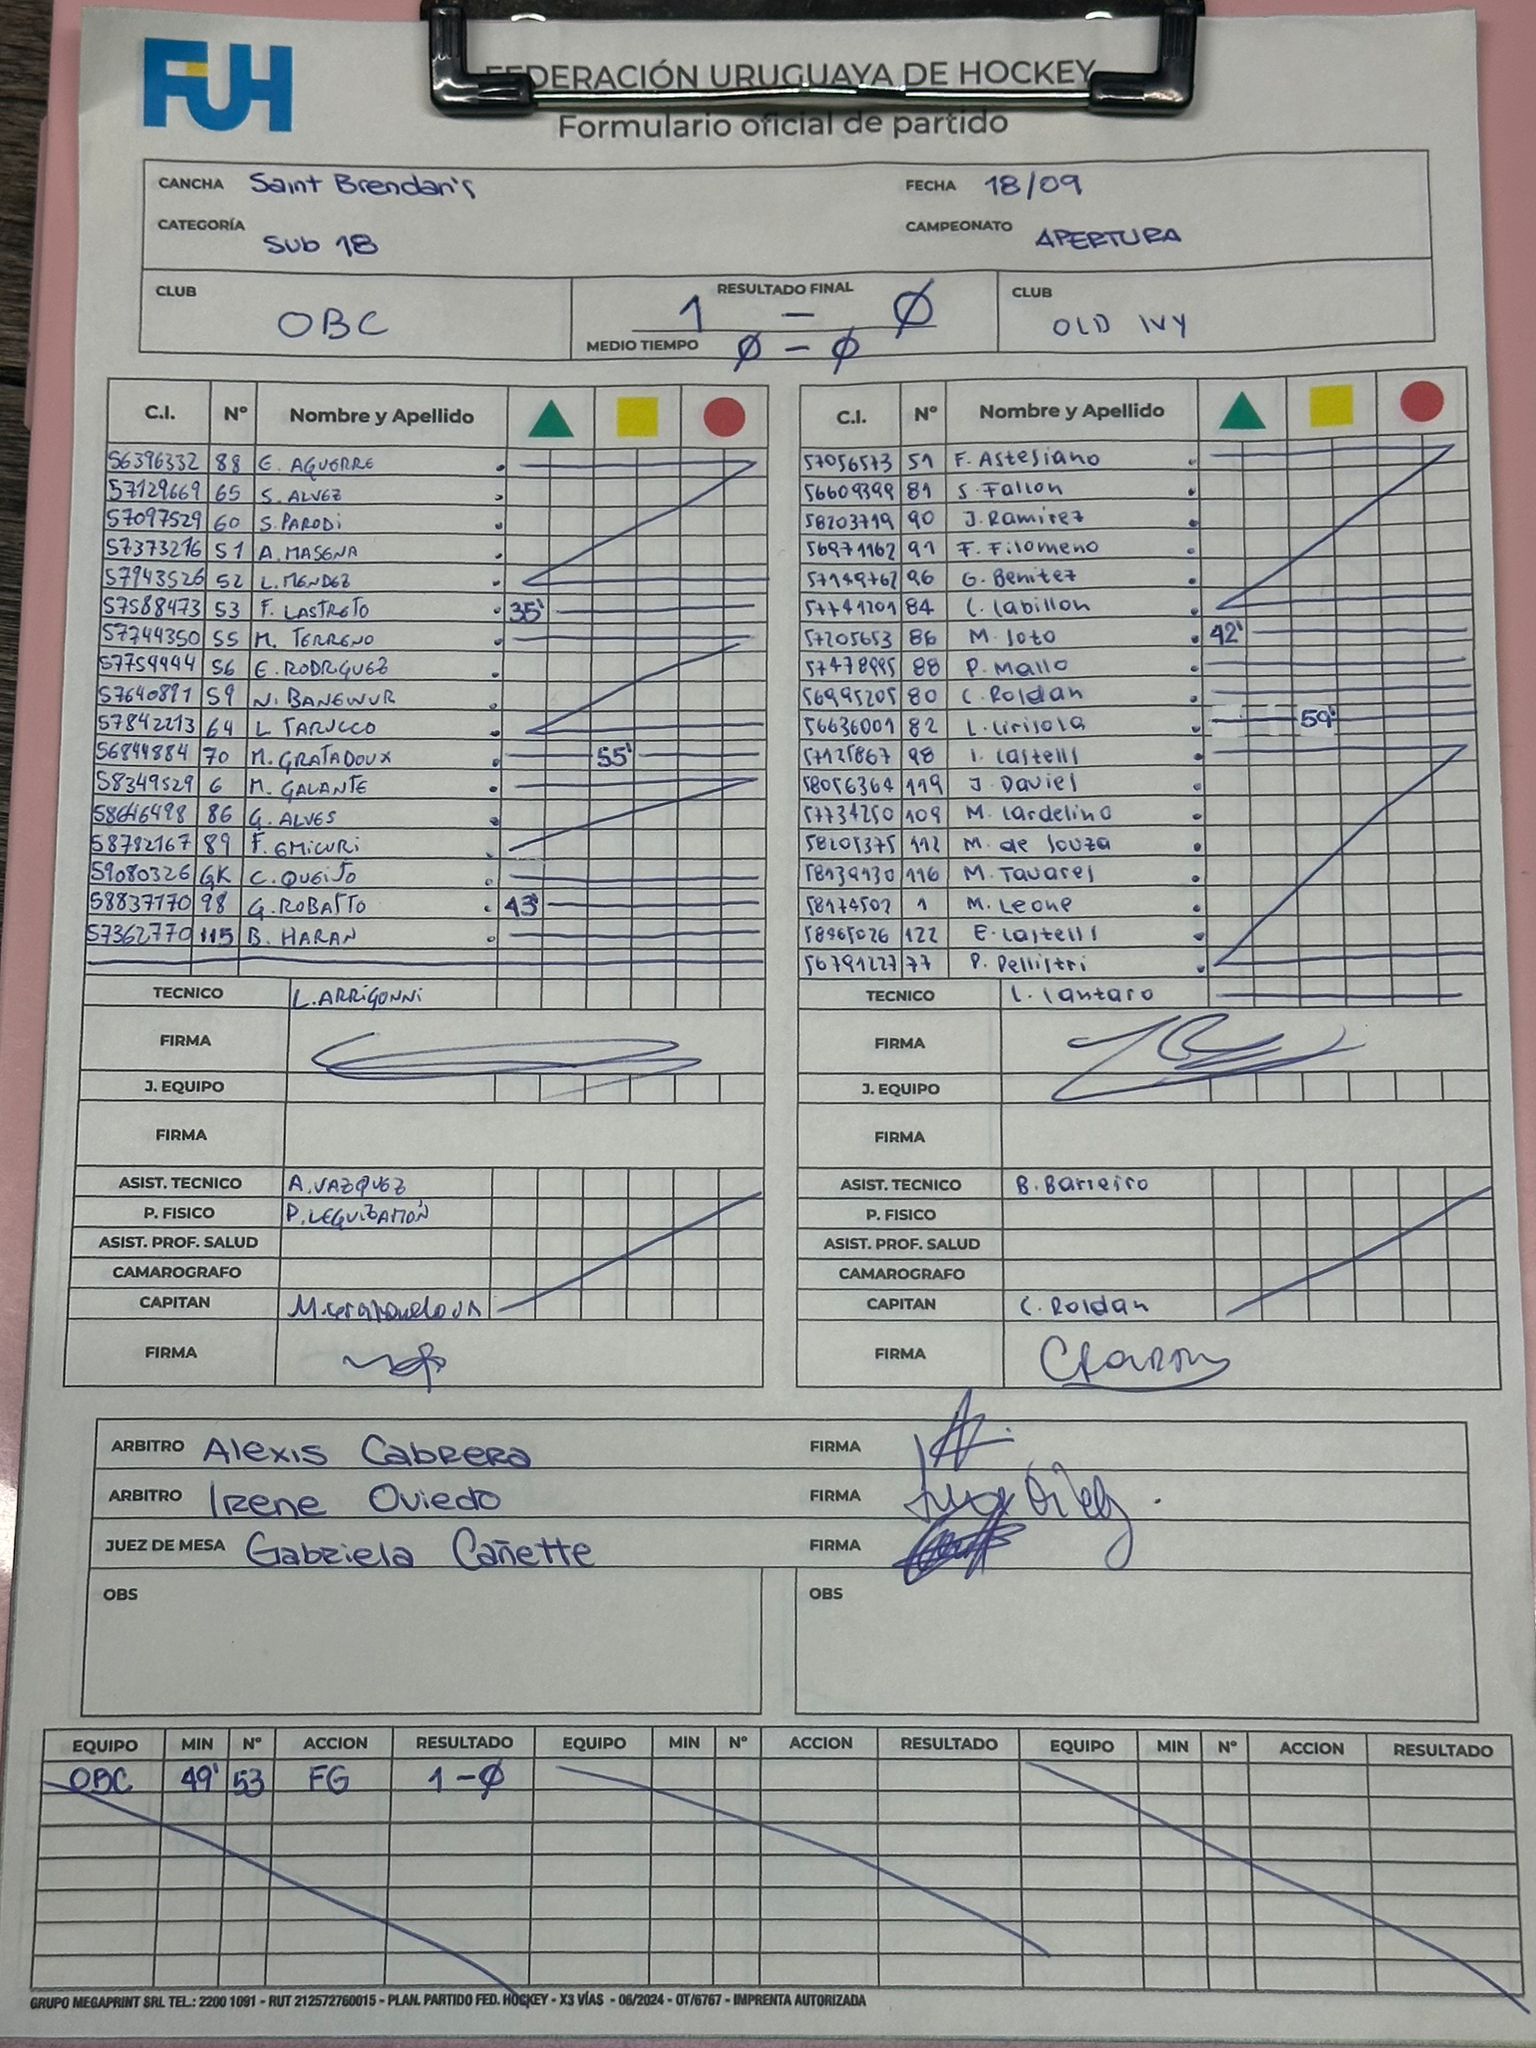 FUH
FEDERACIÓN URUGUAYA DE HOCKEY
Formulario oficial de partido
CANCHA Saint Brendan's FECHA 18/09
CATEGORÍA Sub 18 CAMPEONATO APERTURA
CLUB OBC RESULTADO FINAL 1 - Ø CLUB OLD IVY
MEDIO TIEMPO Ø - Ø
C.I. Nº Nombre y Apellido
56396332 88 E. AGUERRE
57129669 65 S. ALVEZ
57097529 60 S. PARODI
57373216 51 A. MASENA
57943526 52 L. MENDEZ
57588473 53 F. LASTRETO 35'
57744350 55 M. TERRENO
57754444 56 E. RODRIGUEZ
57640891 59
57842213 64 L TARUCCO
56844884 70 M. GRATADOUX 55'
58349529 6 M. GALANTE
58646498 86 G. ALVES
58782167 89 F. EMICURI
59080326 GK C. QUEIJO
58837170 98 G. ROBATTO 43'
57362770 115 B. HARAN
TECNICO L. ARRIGONNI
FIRMA
J. EQUIPO
FIRMA
ASIST. TECNICO A. VAZQUEZ
P. FISICO P. LEGUIZAMÓN
ASIST. PROF. SALUD
CAMAROGRAFO
CAPITAN
FIRMA
C.I. Nº Nombre y Apellido
57056573 51 F. Astesiano
56609399 81 S. Fallon
58203719 90 J. Ramirez
56971162 91 F. Filomeno
57149762 96 G. Benitez
57741201 84 C. Cabillon
57205653 86 M. Soto 42'
57478995 88 P. Mallo
56995205 80 C. Roldan
56636001 82 L. Cirisola 59'
57125867 98 I. Castells
58056364 119 J. Daviel
57734250 109 M. Cardelino
58205375 112 M. de Souza
58139130 116 M. Tavares
58174502 1 M. Leone
58965026 122 E. Castells
56791227 77 P. Pellistri
TECNICO L. Cantaro
FIRMA
J. EQUIPO
FIRMA
ASIST. TECNICO B. Barreiro
P. FISICO
ASIST. PROF. SALUD
CAMAROGRAFO
CAPITAN C. Roldan
FIRMA
ARBITRO Alexis Cabrera FIRMA
ARBITRO Irene Oviedo FIRMA
JUEZ DE MESA Gabriela Cañette FIRMA
OBS OBS
EQUIPO MIN Nº ACCION RESULTADO EQUIPO MIN Nº ACCION RESULTADO EQUIPO MIN Nº ACCION RESULTADO
OBC 49' 53 FG 1-Ø
GRUPO MEGAPRINT SRL TEL.: 2200 1091 - RUT 212572760015 - PLAN. PARTIDO FED. HOCKEY - X3 VÍAS - 06/2024 - OT/6767 - IMPRENTA AUTORIZADA